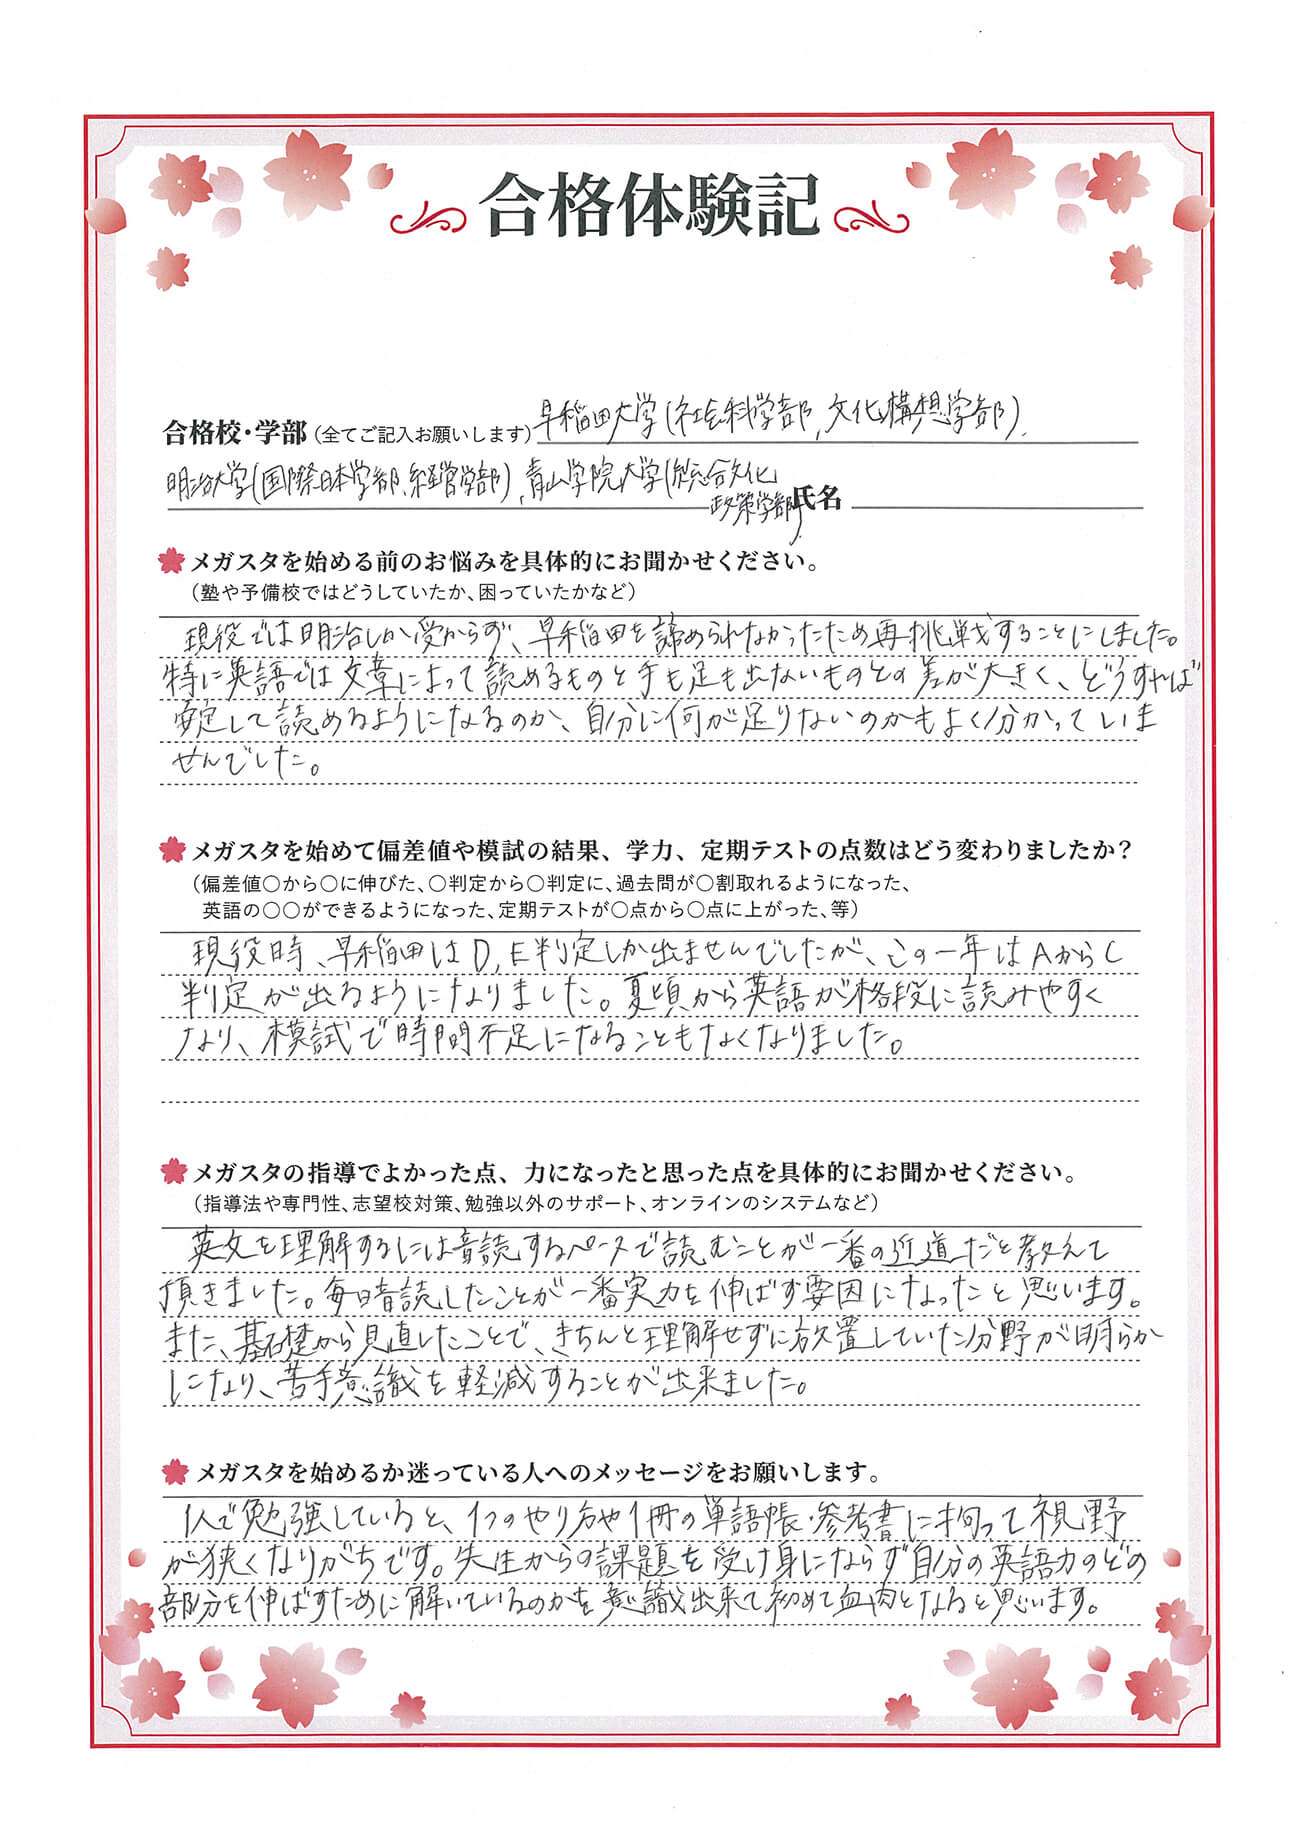 合格体験記
合格校・学部(全てご記入お願いします)早稲田大学(社会科学部,文化構想学部).
明治大学(国際日本学部、経営学部),青山学院大学(総合文化
政策学部)
氏名
メガスタを始める前のお悩みを具体的にお聞かせください。
(塾や予備校ではどうしていたか、困っていたかなど)
現役では明治しか受からず、早稲田を諦められなかったため再挑戦することにしました。
特に英語では文章によって読めるものと手も足も出ないものとの差が大きく、どうすれば
安定して読めるようになるのか、自分に何が足りないのかもよく分かっていま
せんでした。
メガスタを始めて偏差値や模試の結果、学力、定期テストの点数はどう変わりましたか?
(偏差値〇から〇に伸びた、〇判定から〇判定に、過去問が〇割取れるようになった、
英語の〇〇ができるようになった、定期テストが〇点から〇点に上がった、等)
現役時、早稲田はD,E判定しか出ませんでしたが、この一年はAからC
判定が出るようになりました。夏頃から英語が格段に読みやすく
なり、模試で時間不足になることもなくなりました。
メガスタの指導でよかった点、力になったと思った点を具体的にお聞かせください。
(指導法や専門性、志望校対策、勉強以外のサポート、オンラインのシステムなど)
英文を理解するには音読するペースで読むことが一番の近道だと教えて
頂きました。毎日音読したことが一番実力を伸ばす要因になったと思います。
また、基礎から見直したことで、きちんと理解せずに放置していた分野が明らか
になり、苦手意識を軽減することが出来ました。
メガスタを始めるか迷っている人へのメッセージをお願いします。
1人で勉強していると、1つのやり方や1冊の単語帳・参考書に拘って視野
が狭くなりがちです。先生からの課題を受け身にならず自分の英語力のどの
部分を伸ばすために解いているのかを意識出来て初めて血肉となると思います。